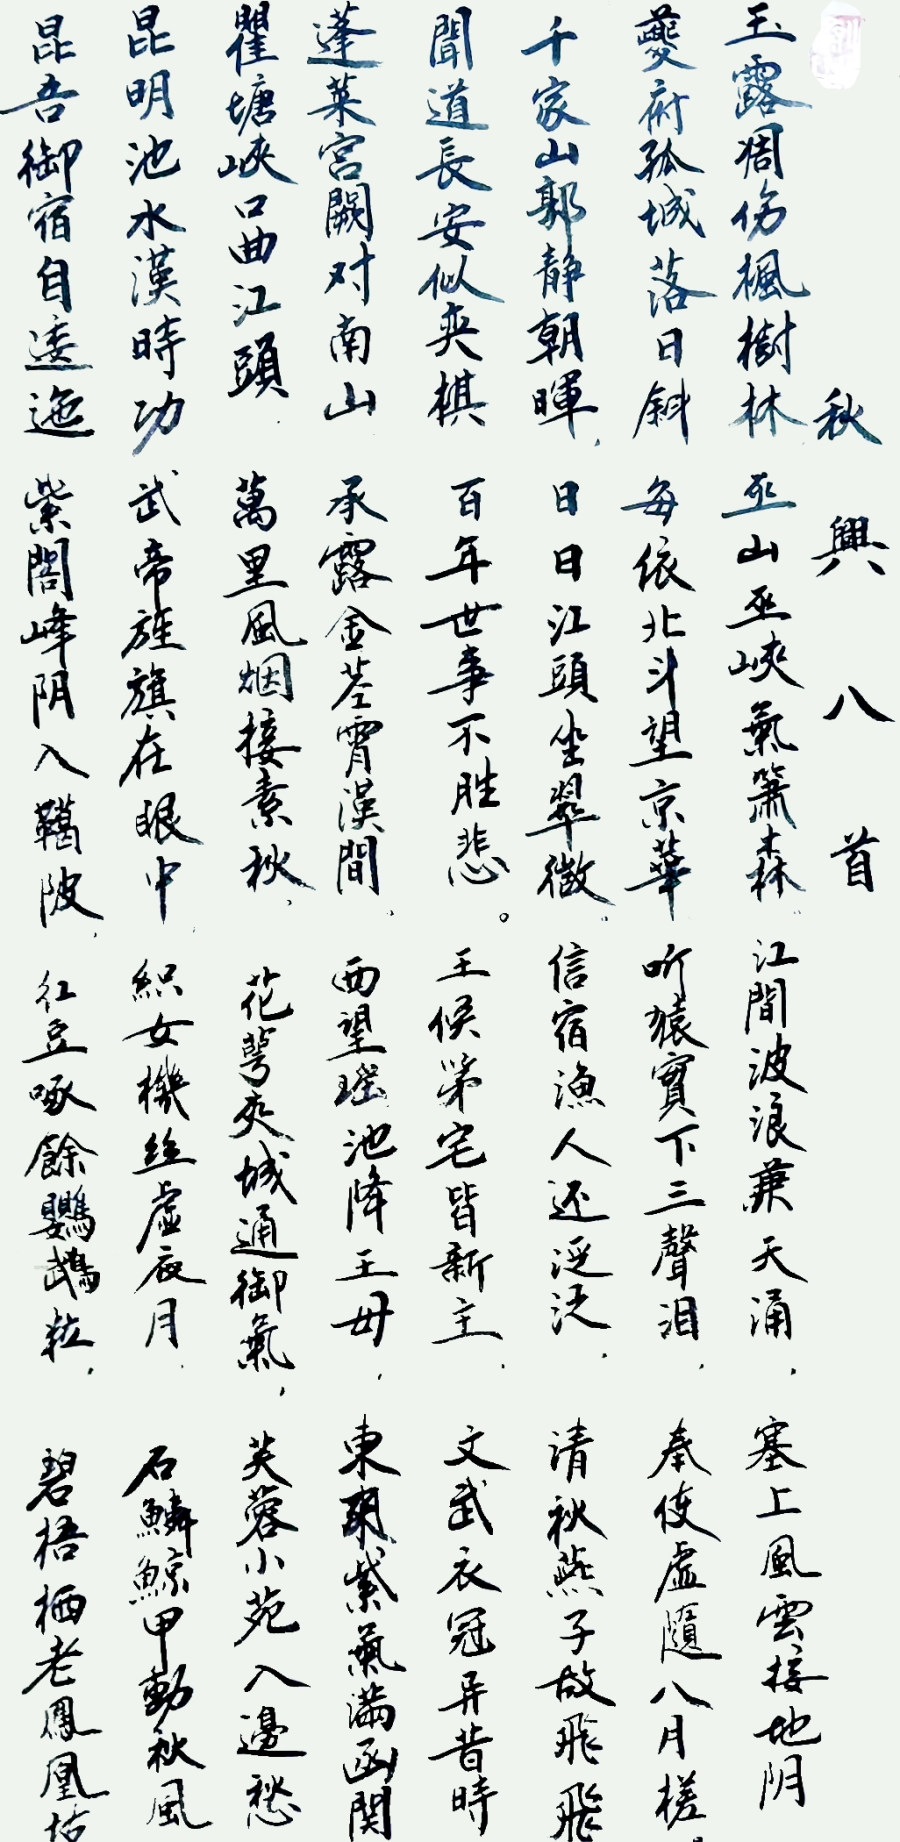 秋興八首
玉露凋伤楓樹林 巫山巫峽氣箫森 江間波浪兼天涌, 塞上風雲接地阴
夔府孤城落日斜 每依北斗望京華 听猿實下三聲泪, 奉使虛隨八月槎。
千家山郭静朝暉, 日日江頭坐翠微. 信宿漁人还泛泛, 清秋燕子故飛飛
聞道長安似奕棋 百年世事不胜悲。 王侯第宅皆新主, 文武衣冠异昔時
蓬莱宫闕对南山 承露金茎霄漢間, 西望瑶池降王母, 東紫氣满函関
瞿塘峽口曲江頭 萬里風烟接素秋, 花萼夾城通御氣, 芙蓉小苑入邊愁
昆明池水漢時功 武帝旌旗在眼中 織女機丝虛夜月 石鱗鯨甲動秋風
昆吾御宿自逶迤 紫閣峰阴入鞨陂, 红豆啄餘鸚鵡粒, 碧梧栖老鳳凰